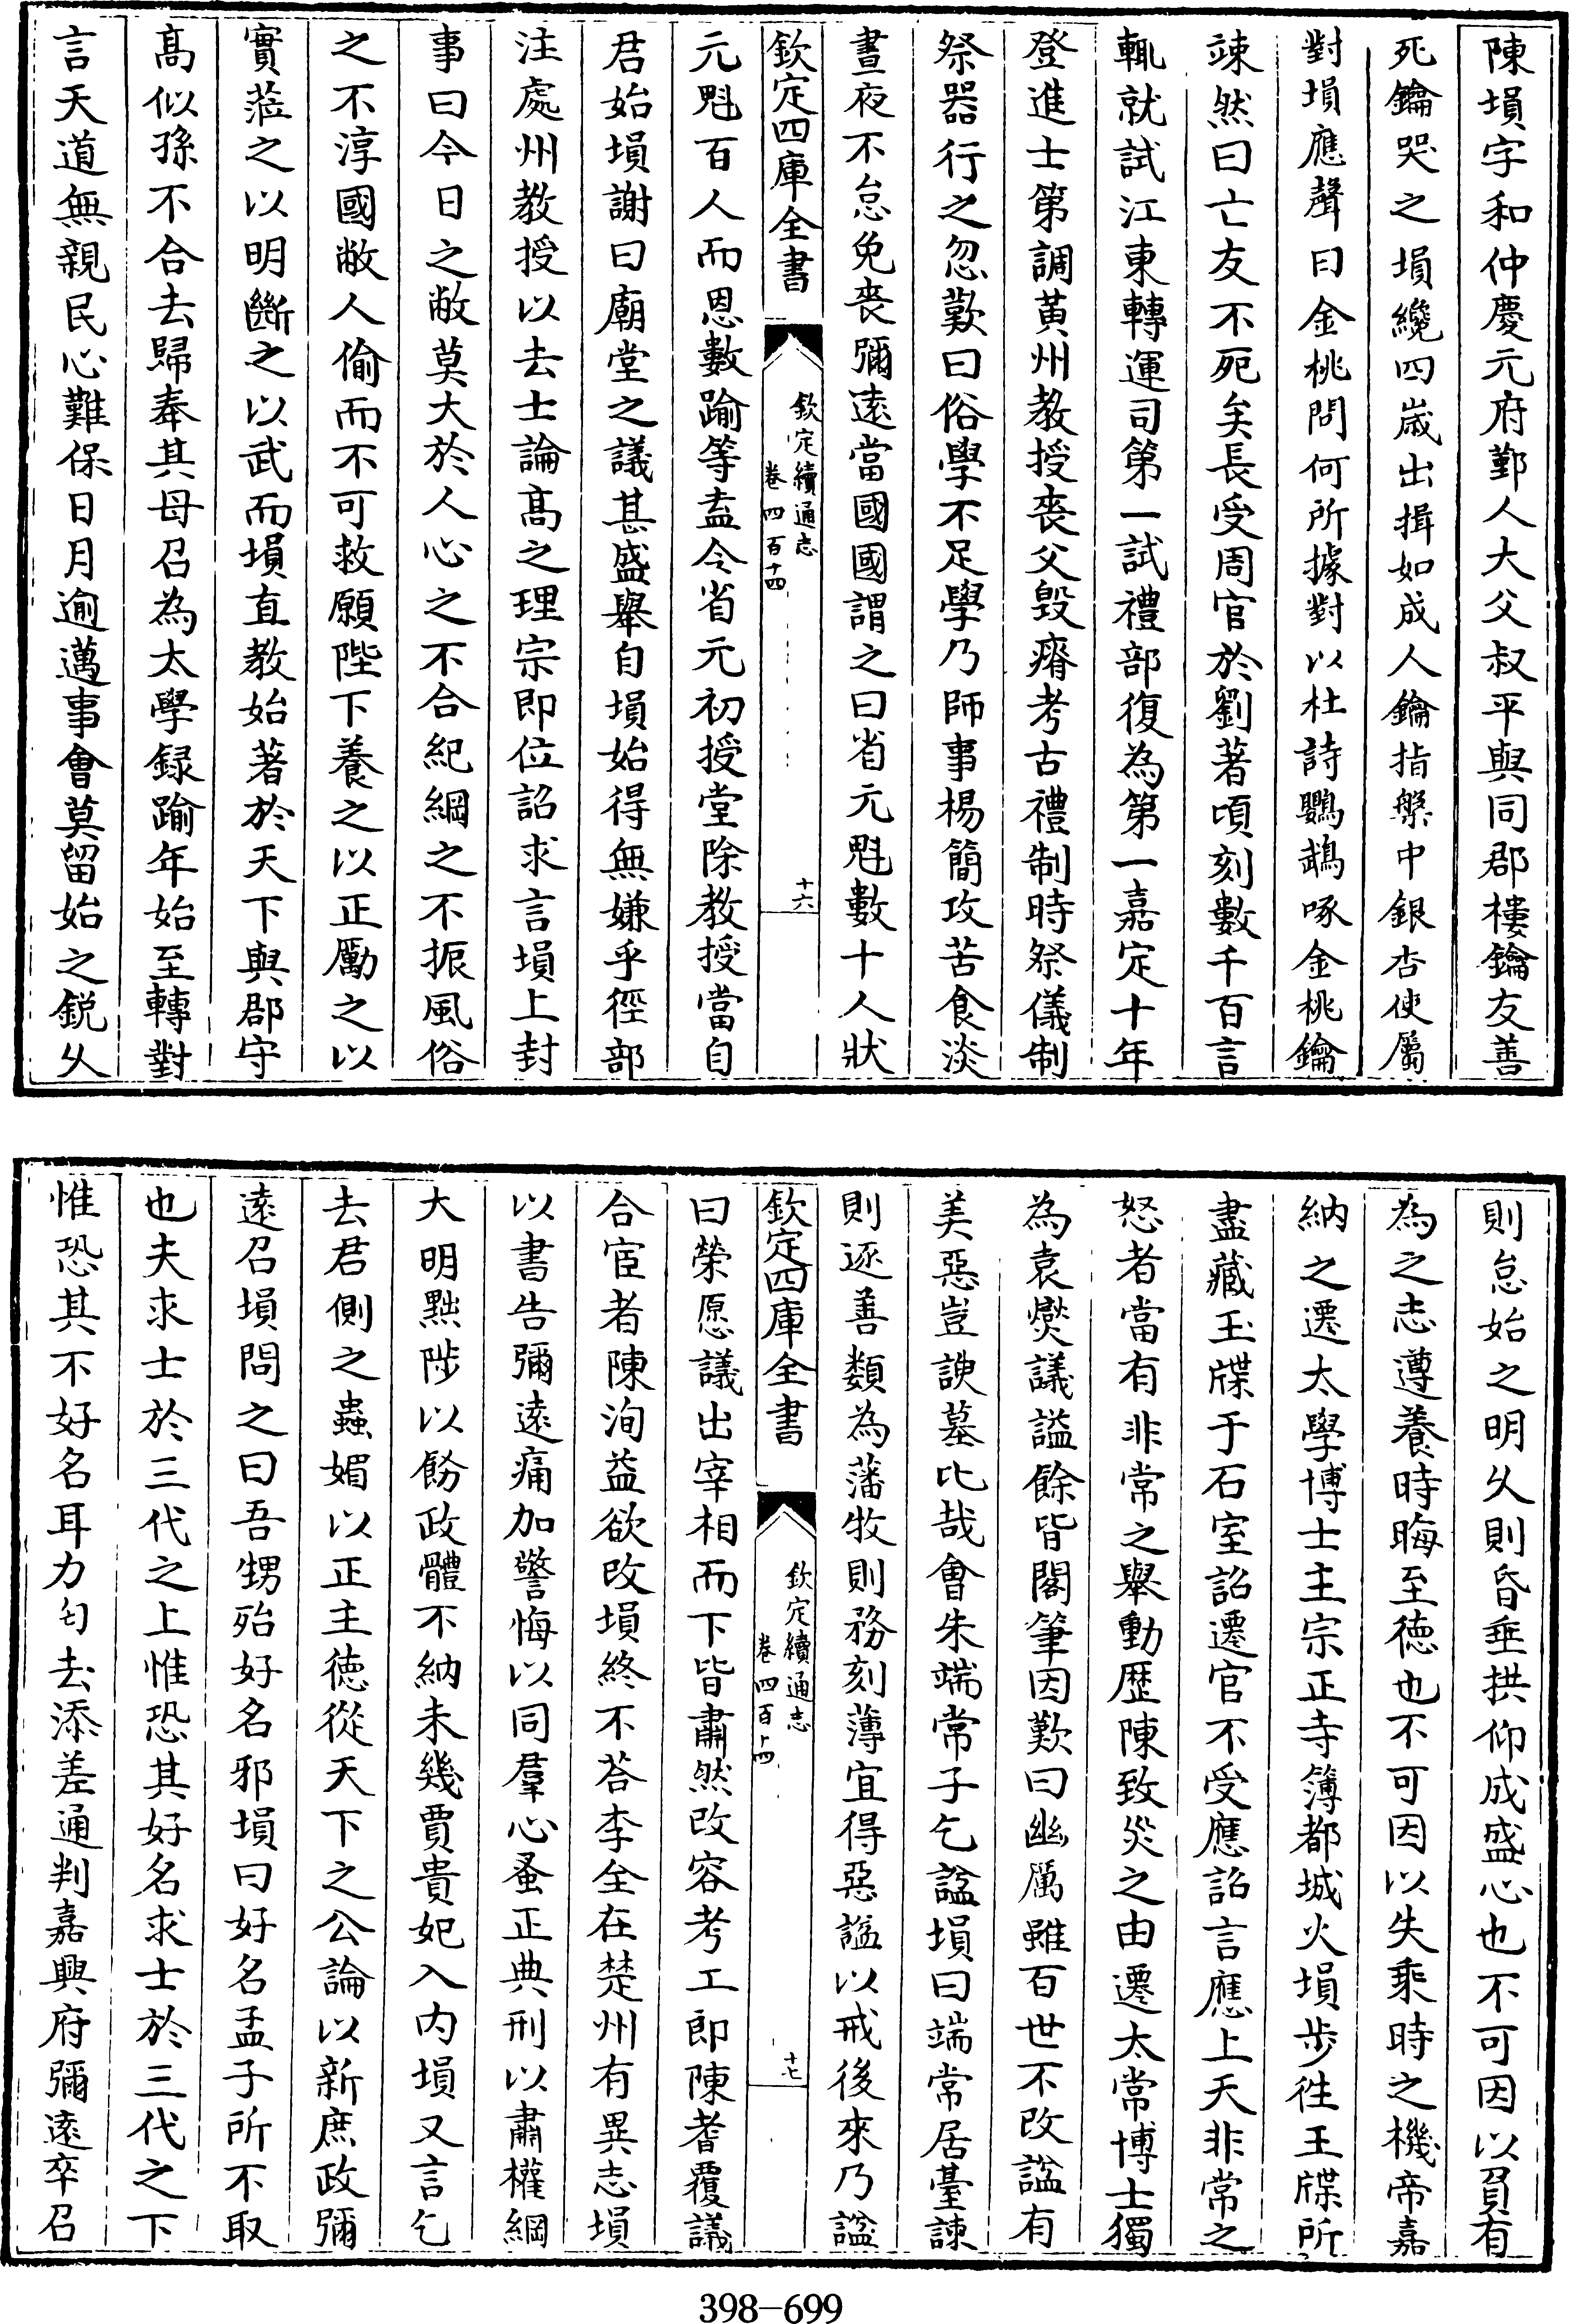 陳塤字和仲慶元府鄞人大父叔平與同郡樓鑰友善
死鑰哭之塤纔四歲出揖如成人鑰指槃中銀杏使屬
對塤應聲曰金桃問何所據對以杜詩鸚鵡啄金桃鑰
竦然曰亡友不死矣長受周官於劉著頃刻數千百言
輒就試江東轉運司第一試禮部復為第一嘉定十年
登進士第調黃州教授喪父毀瘠考古禮制時祭儀制
祭器行之忽歎曰俗學不足學乃師事楊簡攻苦食淡
晝夜不怠免喪彌遠當國國謂之曰省元魁數十人狀
欽定四庫全書
欽定續通志
卷四百十四
十六
元魁百人而恩數踰等盍今省元初授堂除教授當自
君始塤謝曰廟堂之議甚盛舉自塤始得無嫌乎徑部
注處州教授以去士論高之理宗即位詔求言塤上封
事曰今日之敝莫大於人心之不合紀綱之不振風俗
之不淳國敝人偷而不可救願陛下養之以正勵之以
實蒞之以明斷之以武而塤直教始著於天下與郡守
高似孫不合去歸奉其母召為太學録踰年始至轉對
言天道無親民心難保日月逾邁事會莫留始之銳久
則怠始之明久則昏垂拱仰成盛心也不可因以負有
為之志遵養時晦至德也不可因以失乘時之機帝嘉
納之遷太學博士主宗正寺簿都城火塤步徃玉牒所
盡藏玉牒于石室詔遷官不受應詔言應上天非常之
怒者當有非常之舉動歷陳致災之由遷太常博士獨
為袁爕議謚餘皆閣筆因歎曰幽厲雖百世不改謚有
美惡豈諛墓比哉會朱端常子乞謚塤曰端常居臺諫
則逐善類為藩牧則務刻薄宜得惡謚以戒後來乃謚
欽定四庫全書
欽定續通志
卷四百十四
十七
曰榮愿議出宰相而下皆肅然改容考工郎陳耆覆議
合宦者陳洵益欲改塤終不荅李全在楚州有異志塤
以書告彌遠痛加警悔以同羣心蚤正典刑以肅權綱
大明黜陟以飭政體不納未幾賈貴妃入内塤又言乞
去君側之蟲媚以正主徳從天下之公論以新庶政彌
遠召塤問之曰吾甥殆好名邪塤曰好名孟子所不取
也夫求士於三代之上惟恐其好名求士於三代之下
惟恐其不好名耳力匄去添差通判嘉興府彌遠卒召
398-699